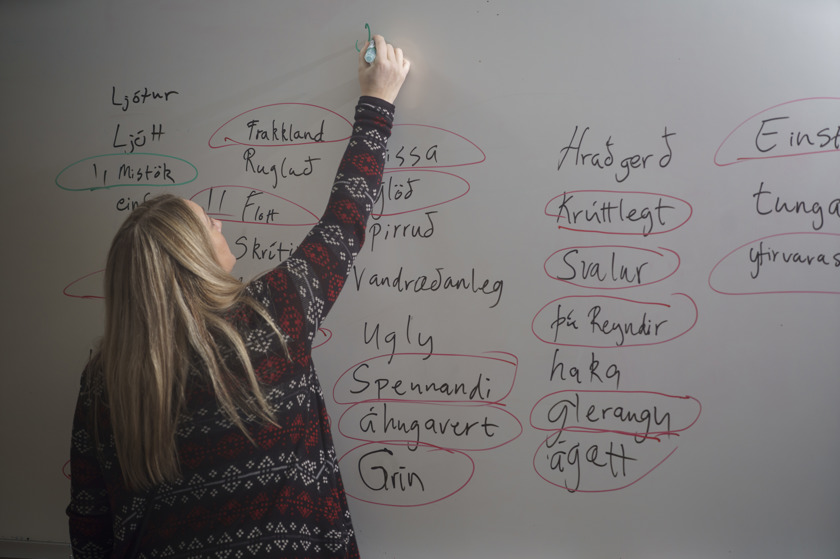 Ljótur
Ljótt
Mistök
Frakkland
Ruglað
Flott
issa
glöð
pirruð
Vandræðanleg
Ugly
Spennandi
áhugavert
Grín
Hraðgerð
Krúttlegt
Svalur
Þú Reyndir
haka
glerangu
ágætt
Einst
tunga
yfirvaras